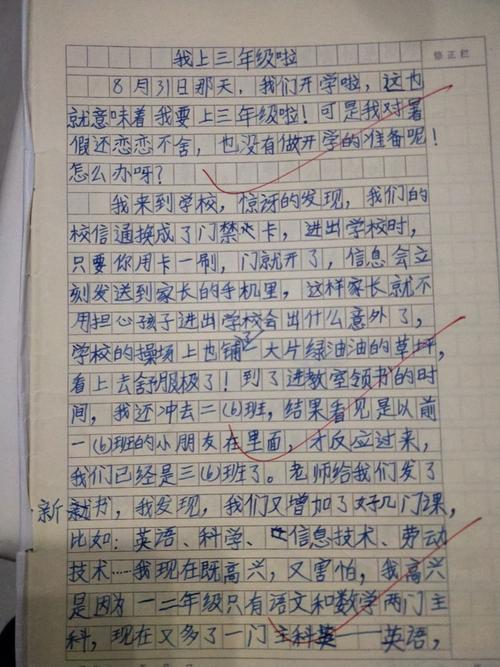 我上三年级啦
修正栏
8月31日那天，我们开学啦，这也
就意味着我要上三年级啦！可是我对暑
假还恋恋不舍，也没有做开学的准备呢！
怎么办呀？
我来到学校，惊讶的发现，我们的
校信通换成了门禁卡，进出学校时，
只要你用卡一刷，门就开了，信息会立
刻发送到家长的手机里，这样家长就不
用担心孩子进出学校会出什么意外了，
学校的操场上也铺了大片绿油油的草坪，
看上去舒服极了！到了进教室领书的时
间，我还冲去二(6)班，结果看见是以前
一(6)班的小朋友在里面，才反应过来，
我们已经是三(6)班了。老师给我们发了
新书，我发现，我们又增加了好几门课，
比如：英语、科学、信息技术、劳动
技术……我现在既高兴，又害怕，我高兴
是因为一二年级只有语文和数学两门主
科，现在又多了一门主科——英语，